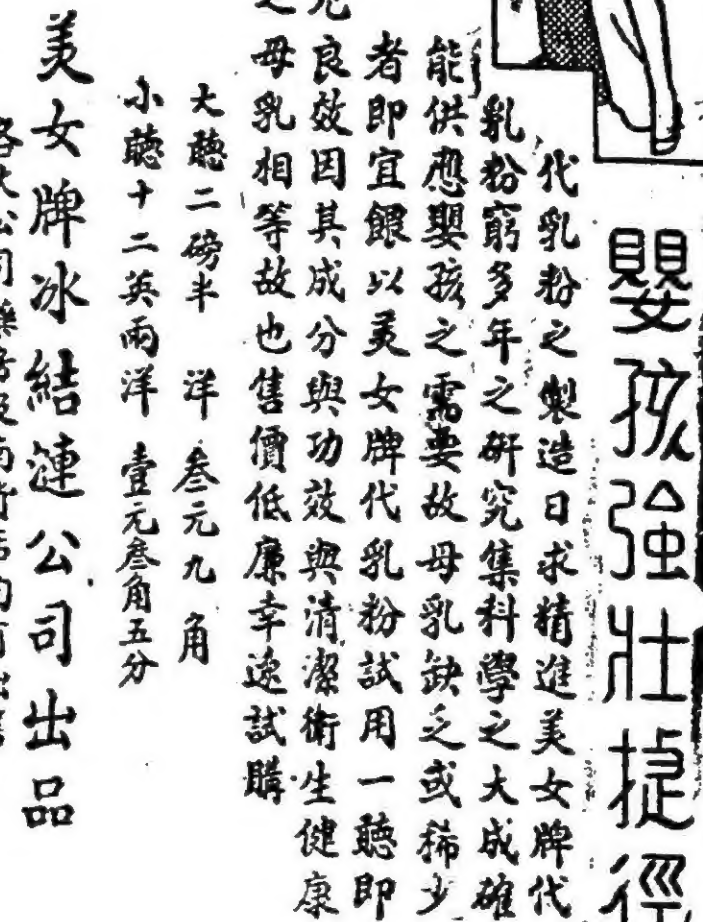 嬰孩強壯捷徑
代乳粉之製造日求精進美女牌代
乳粉窮多年之研究集科學之大成確
能供應嬰孩之需要故母乳缺乏或稀少
者即宜餵以美女牌代乳粉試用一聽即
見良效因其成分與功效與清潔衛生健康
之母乳相等故也售價低廉幸速試購
大聽二磅半 洋 叁元九角
小聽十二英兩洋 壹元叁角五分
美女牌冰結漣公司出品